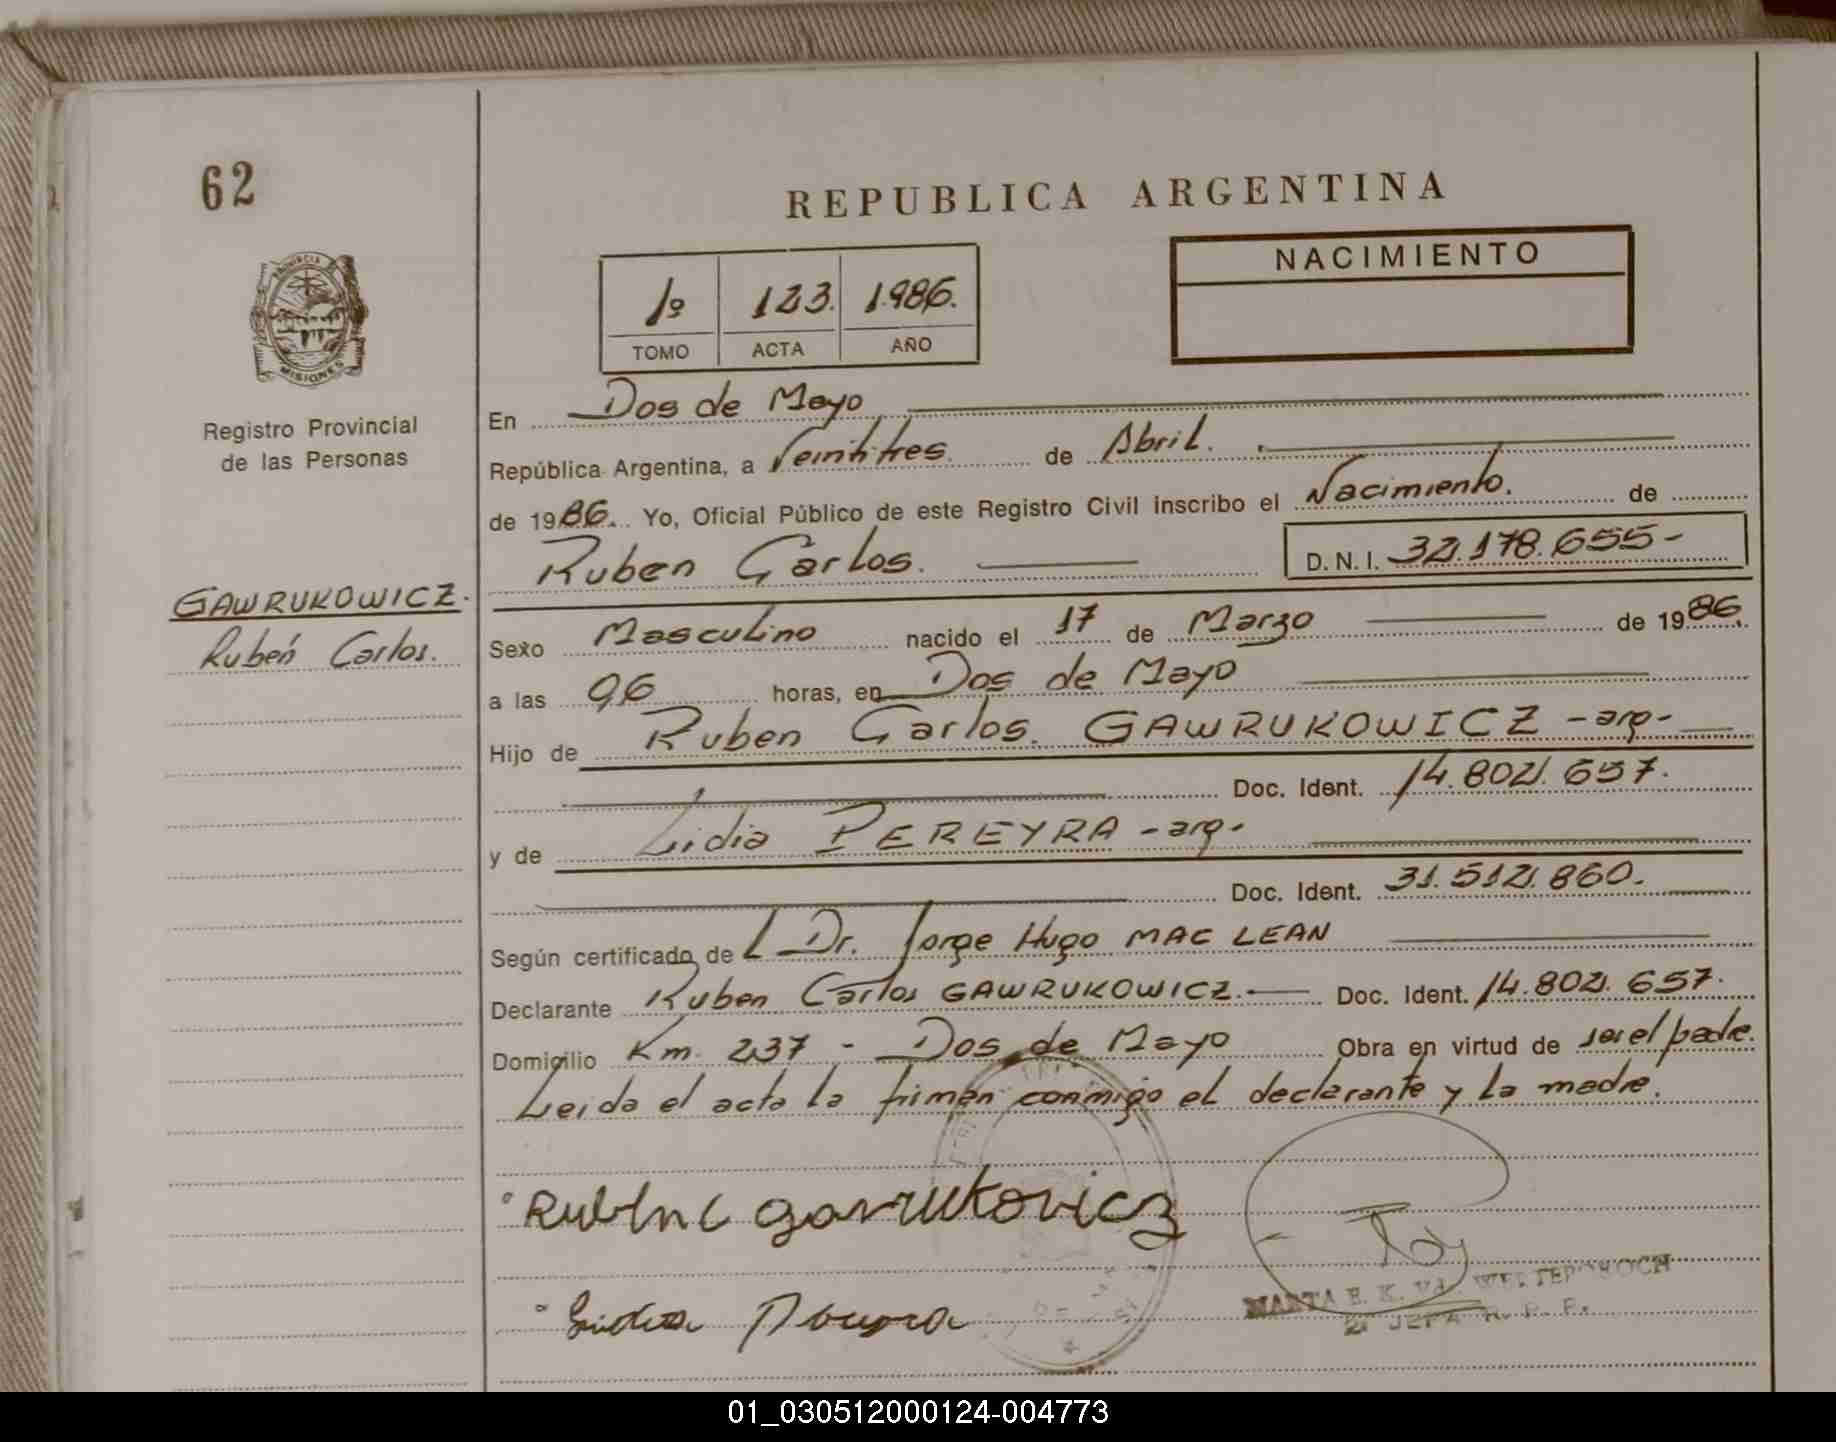 62
REPUBLICA ARGENTINA
NACIMIENTO
1º 123. 1.986.
TOMO ACTA AÑO
PROVINCIA DE
MISIONES
Registro Provincial
de las Personas
GAWRUKOWICZ.
Rubén Carlos.
En Dos de Mayo
República Argentina, a Veintitres de Abril.
de 1986. Yo, Oficial Público de este Registro Civil inscribo el Nacimiento. de
Ruben Carlos. D.N.I. 32.178.655-
Sexo Masculino nacido el 17 de Marzo de 1986.
a las 06 horas, en Dos de Mayo
Hijo de Ruben Carlos. GAWRUKOWICZ -arg-
Doc. Ident. 14.802.657.
y de Lidia PEREYRA -arg-
Doc. Ident. 31.512.860.
Según certificado de Dr. Jorge Hugo MAC LEAN
Declarante Ruben Carlos GAWRUKOWICZ. Doc. Ident. 14.802.657.
Domicilio Km. 237 - Dos de Mayo Obra en virtud de ser el padre.
Leida el acta la firman conmigo el declarante y la madre.
Ruben C gavrukovicz
Lidia Pereyra
MARTA E. K. Vd.
JEFA R. P. P.
01_030512000124-004773